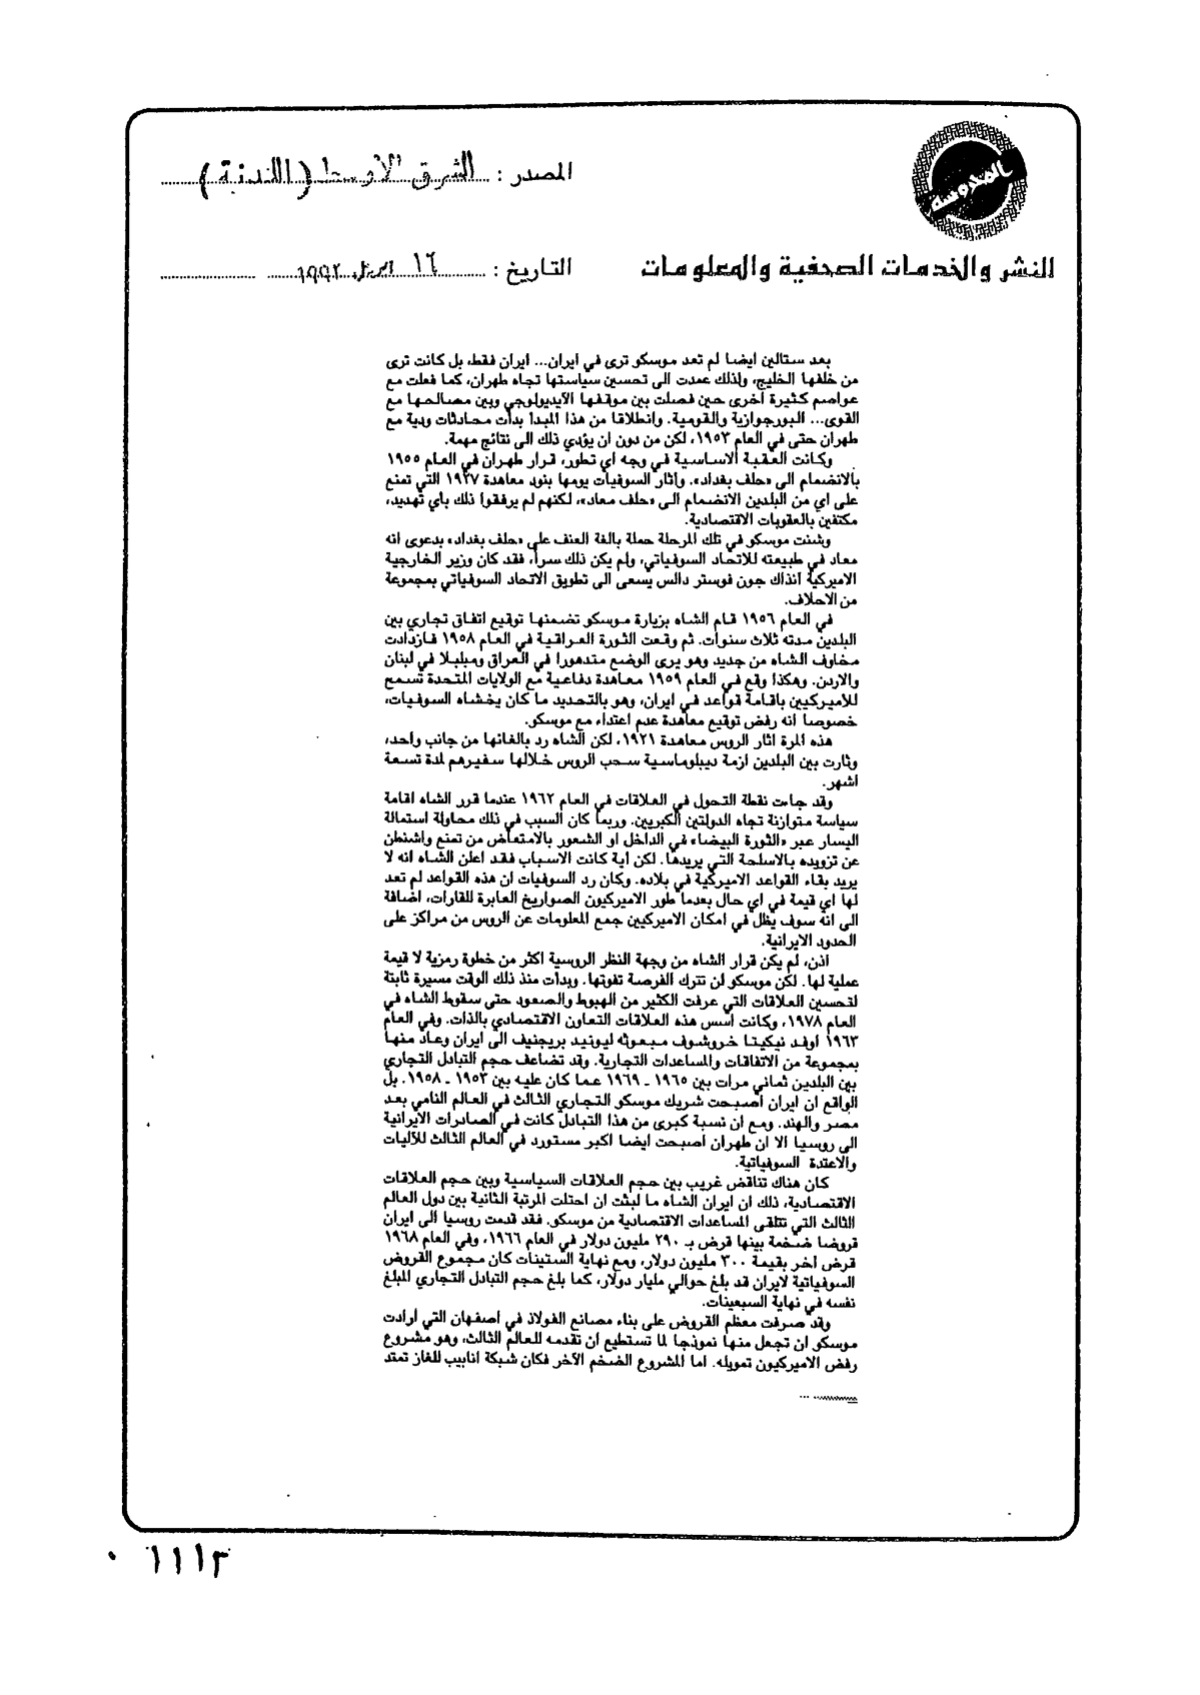 المدوسة
المصدر : الشرق الأوسط (اللندنية)
النشر والخدمات الصحفية والمعلومات
التاريخ : ١٦ ابريل ١٩٩٢
بعد ستالين ايضا لم تعد موسكو ترى في ايران... ايران فقط، بل كانت ترى
من خلفها الخليج، ولذلك عمدت الى تحسين سياستها تجاه طهران، كما فعلت مع
عواصم كثيرة اخرى حين فصلت بين موقفها الآيديولوجي وبين مصالحها مع
القوى... البورجوازية والقومية. وانطلاقا من هذا المبدا بدأت محادثات ودية مع
طهران حتى في العام ١٩٥٣، لكن من دون ان يؤدي ذلك الى نتائج مهمة.
وكانت العقبة الاساسية في وجه اي تطور، قرار طهران في العام ١٩٥٥
بالانضمام الى «حلف بغداد». واثار السوفيات يومها بنود معاهدة ١٩٢٧ التي تمنع
على اي من البلدين الانضمام الى «حلف معاد»، لكنهم لم يرفقوا ذلك باي تهديد،
مكتفين بالعقوبات الاقتصادية.
وشنت موسكو في تلك المرحلة حملة بالغة العنف على «حلف بغداد» بدعوى انه
معاد في طبيعته للاتحاد السوفياتي، ولم يكن ذلك سراً، فقد كان وزير الخارجية
الاميركية آنذاك جون فوستر دالس يسعى الى تطويق الاتحاد السوفياتي بمجموعة
من الاحلاف.
في العام ١٩٥٦ قام الشاه بزيارة موسكو تضمنها توقيع اتفاق تجاري بين
البلدين مدته ثلاث سنوات. ثم وقعت الثورة العراقية في العام ١٩٥٨ فازدادت
مخاوف الشاه من جديد وهو يرى الوضع متدهورا في العراق ومبلبلا في لبنان
والاردن. وهكذا وقع في العام ١٩٥٩ معاهدة دفاعية مع الولايات المتحدة تسمح
للاميركيين باقامة قواعد في ايران، وهو بالتحديد ما كان يخشاه السوفيات،
خصوصا انه رفض توقيع معاهدة عدم اعتداء مع موسكو.
هذه المرة اثار الروس معاهدة ١٩٢١، لكن الشاه رد بالغائها من جانب واحد،
وثارت بين البلدين ازمة ديبلوماسية سحب الروس خلالها سفيرهم لمدة تسعة
اشهر.
وقد جاءت نقطة التحول في العلاقات في العام ١٩٦٢ عندما قرر الشاه اقامة
سياسة متوازنة تجاه الدولتين الكبريين. وربما كان السبب في ذلك محاولة استمالة
اليسار عبر «الثورة البيضاء» في الداخل او الشعور بالامتعاض من تمنع واشنطن
عن تزويده بالاسلحة التي يريدها. لكن اية كانت الاسباب فقد اعلن الشاه انه لا
يريد بقاء القواعد الاميركية في بلاده. وكان رد السوفيات ان هذه القواعد لم تعد
لها اي قيمة في اي حال بعدما طور الاميركيون الصواريخ العابرة للقارات، اضافة
الى انه سوف يظل في امكان الاميركيين جمع المعلومات عن الروس من مراكز على
الحدود الايرانية.
اذن، لم يكن قرار الشاه من وجهة النظر الروسية اكثر من خطوة رمزية لا قيمة
عملية لها. لكن موسكو لن تترك الفرصة تفوتها. وبدأت منذ ذلك الوقت مسيرة ثابتة
لتحسين العلاقات التي عرفت الكثير من الهبوط والصعود حتى سقوط الشاه في
العام ١٩٧٨، وكانت أسس هذه العلاقات التعاون الاقتصادي بالذات. وفي العام
١٩٦٣ اوفد نيكيتا خروشوف مبعوثه ليونيد بريجنيف الى ايران وعاد منها
بمجموعة من الاتفاقات والمساعدات التجارية. وقد تضاعف حجم التبادل التجاري
بين البلدين ثماني مرات بين ١٩٦٥ ـ ١٩٦٩ عما كان عليه بين ١٩٥٣ ـ ١٩٥٨. بل
الواقع ان ايران أصبحت شريك موسكو التجاري الثالث في العالم النامي بعد
مصر والهند. ومع ان نسبة كبرى من هذا التبادل كانت في الصادرات الايرانية
الى روسيا الا ان طهران اصبحت ايضا اكبر مستورد في العالم الثالث للآليات
والاعتدة السوفياتية.
كان هناك تناقض غريب بين حجم العلاقات السياسية وبين حجم العلاقات
الاقتصادية، ذلك ان ايران الشاه ما لبثت ان احتلت المرتبة الثانية بين دول العالم
الثالث التي تتلقى المساعدات الاقتصادية من موسكو. فقد قدمت روسيا الى ايران
قروضا ضخمة بينها قرض بـ ٢٩٠ مليون دولار في العام ١٩٦٦، وفي العام ١٩٦٨
قرض آخر بقيمة ٣٠٠ مليون دولار، ومع نهاية الستينات كان مجموع القروض
السوفياتية لايران قد بلغ حوالي مليار دولار، كما بلغ حجم التبادل التجاري المبلغ
نفسه في نهاية السبعينات.
وقد صرفت معظم القروض على بناء مصانع الفولاذ في اصفهان التي أرادت
موسكو ان تجعل منها نموذجا لما تستطيع ان تقدمه للعالم الثالث، وهو مشروع
رفض الاميركيون تمويله. اما المشروع الضخم الآخر فكان شبكة انابيب للغاز تمتد
٠١١١٣